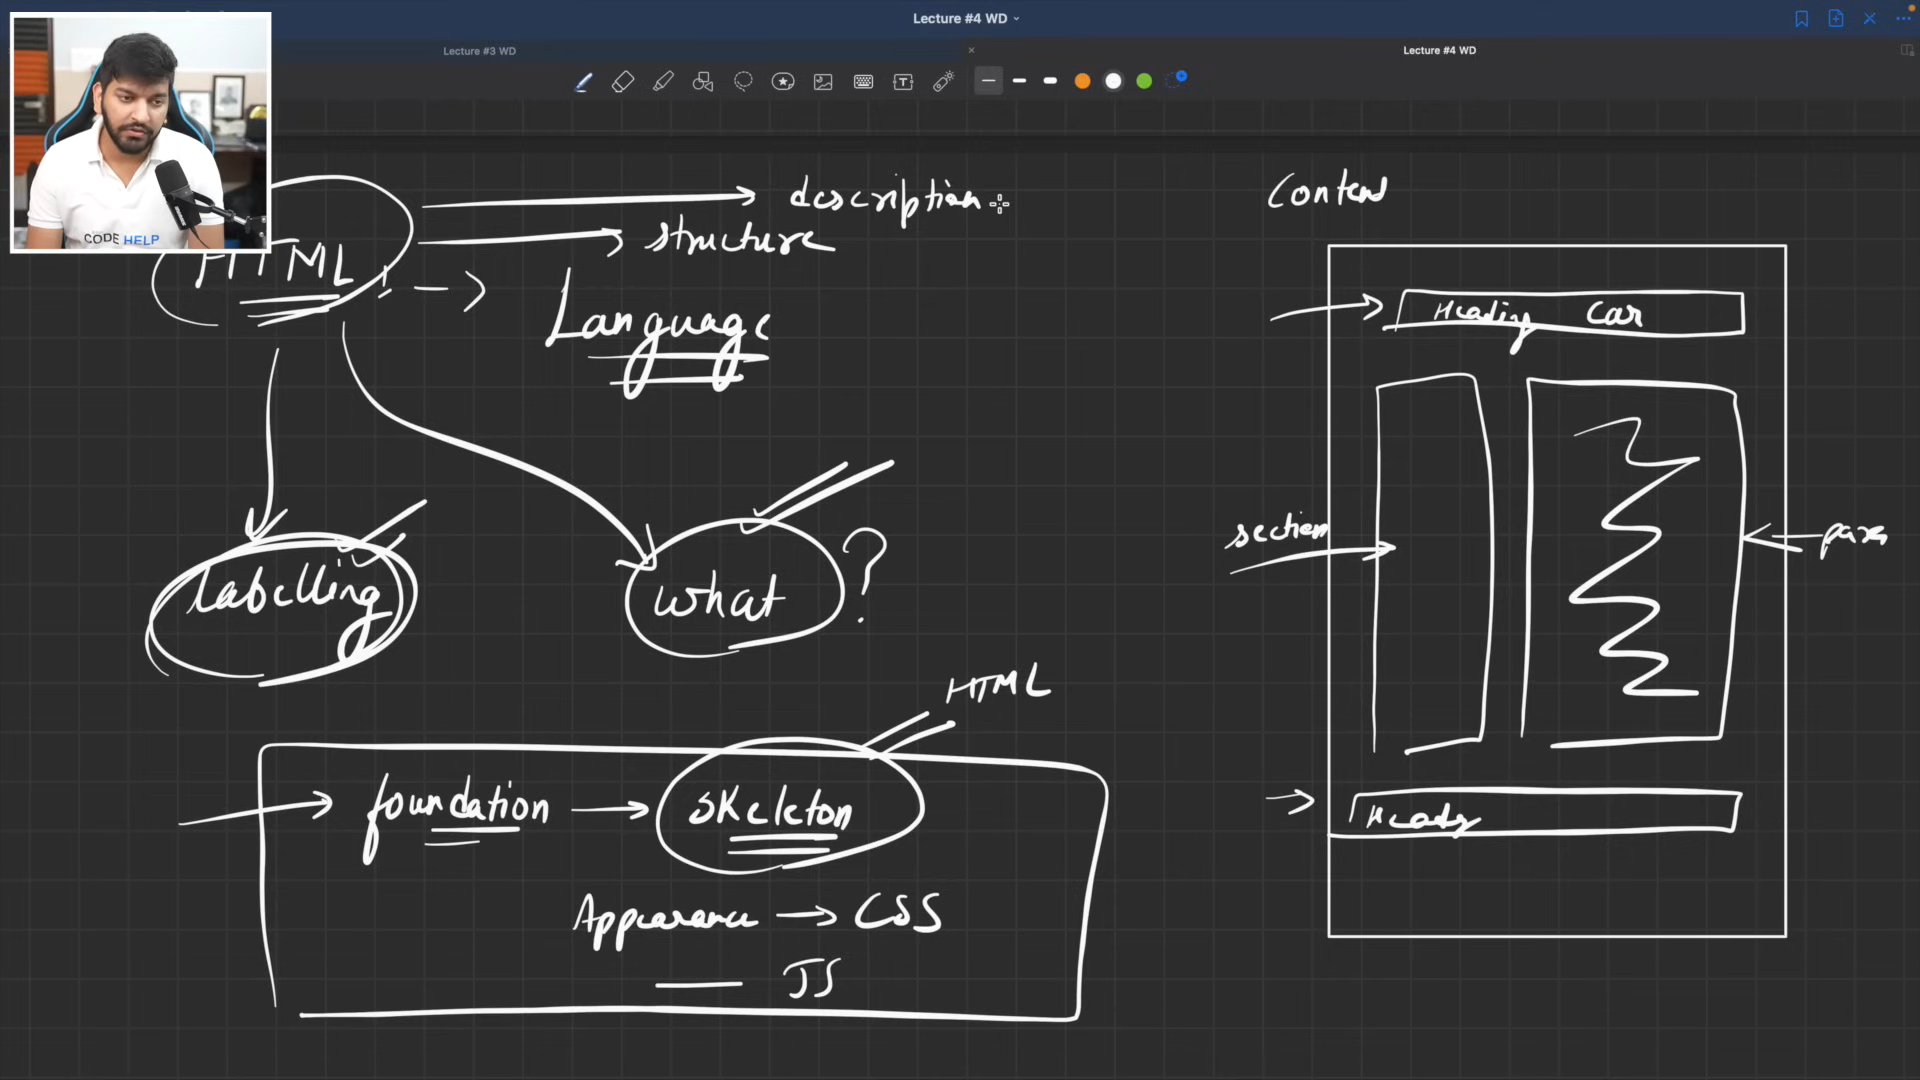 Lecture #4 WD
Lecture #3 WD
Lecture #4 WD
CODE HELP
HTML
description
structure
Language
labelling
what ?
HTML
foundation → skeleton
Appearance → CSS
JS
Content
Heading Car
section
para
Heading